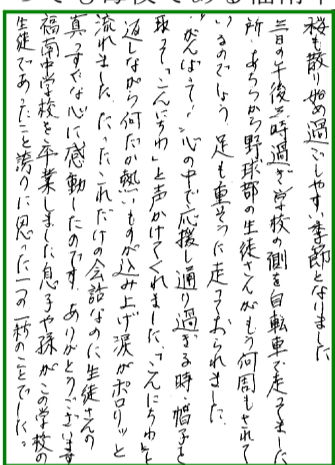 桜も散り始め過ごしやすい季節となりました
三日の午後三時過ぎ学校の側を自転車で走ってました
所、あちらから野球部の生徒さんがもう何周もされて
いるのでしょう足も重そうに走っておられました。
"がんばって!"心の中で応援し通り過ぎる時、帽子を
取って「こんにちわ」と声かけてくれました。「こんにちわ」を
返しながら何だか熱いものが込み上げ涙がポロリッと
流れました。たったこれだけの会話なのに生徒さんの
真っすぐな心に感動したのです。ありがとうございます
福南中学校を卒業しました息子や孫がこの学校の
生徒であったことを誇りに思った一つの